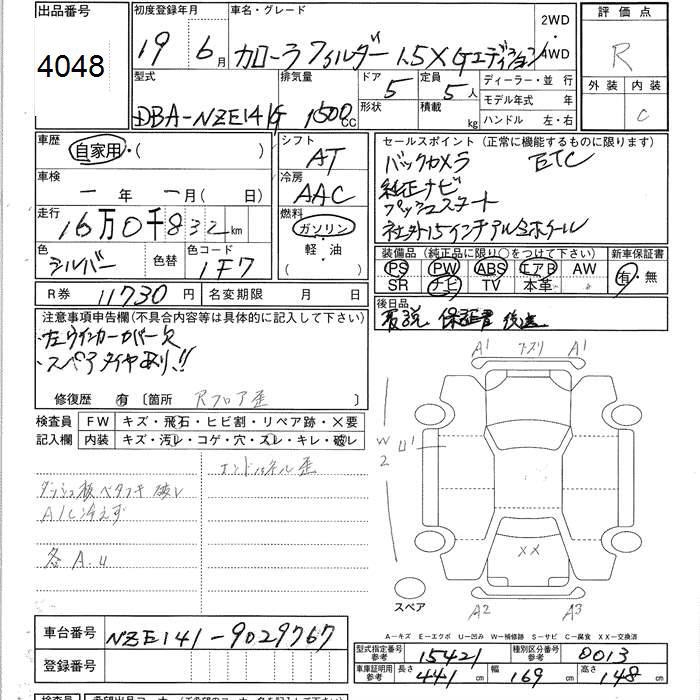 出品番号
4048
初度登録年月
19 6月
車名・グレード
カローラ フィルダー 1.5X Gエディション
2WD
4WD
評価点
R
外装 内装
C
型式
DBA-NZE141G
排気量
1500cc
ドア
5
形状
定員
5人
積載
kg
ディーラー・並 行
モデル年式 年
ハンドル 左・右
車歴
自家用・( )
シフト
AT
車検
一 年 一月( 日)
冷房
AAC
走行
16万0千832km
燃料
ガソリン
軽・油
( )
色
シルバー
色替
色コード
1F7
R券 11730円
名変期限 月 日
セールスポイント(正常に機能するものに限ります)
バックカメラ ETC
純正ナビ
プッシュスタート
社外15インチアルミホイール
装備品(純正品に限り○をつけて下さい)
新車保証書
PS PW ABS エアB AW
SR ナビ TV 本革
有・無
後日品
取説 保証書 後送
注意事項申告欄(不具合内容等は具体的に記入して下さい)
・左ウインカーカバー欠
・スペアタイヤあり!!
修復歴 有 〔箇所 Rフロア歪 〕
検査員
記入欄
FW キズ・飛石・ヒビ割・リペア跡・X要
内装 キズ・汚レ・コゲ・穴・スレ・キレ・破レ
エンドパネル歪
ダッシュ板ベタツキ 破レ
A/C冷えず
各A.U
A1 A1
W2
U1
XX
スペア
A2 A3
A-キズ E-エクボ U-凹み W-補修跡 S-サビ C-腐食 XX-交換済
車台番号 NZE141-9029767
登録番号
型式指定番号
参考
15421
種別区分番号
参考
0013
車庫証明用
参考
長さ 441cm
幅 169cm
高さ 148cm